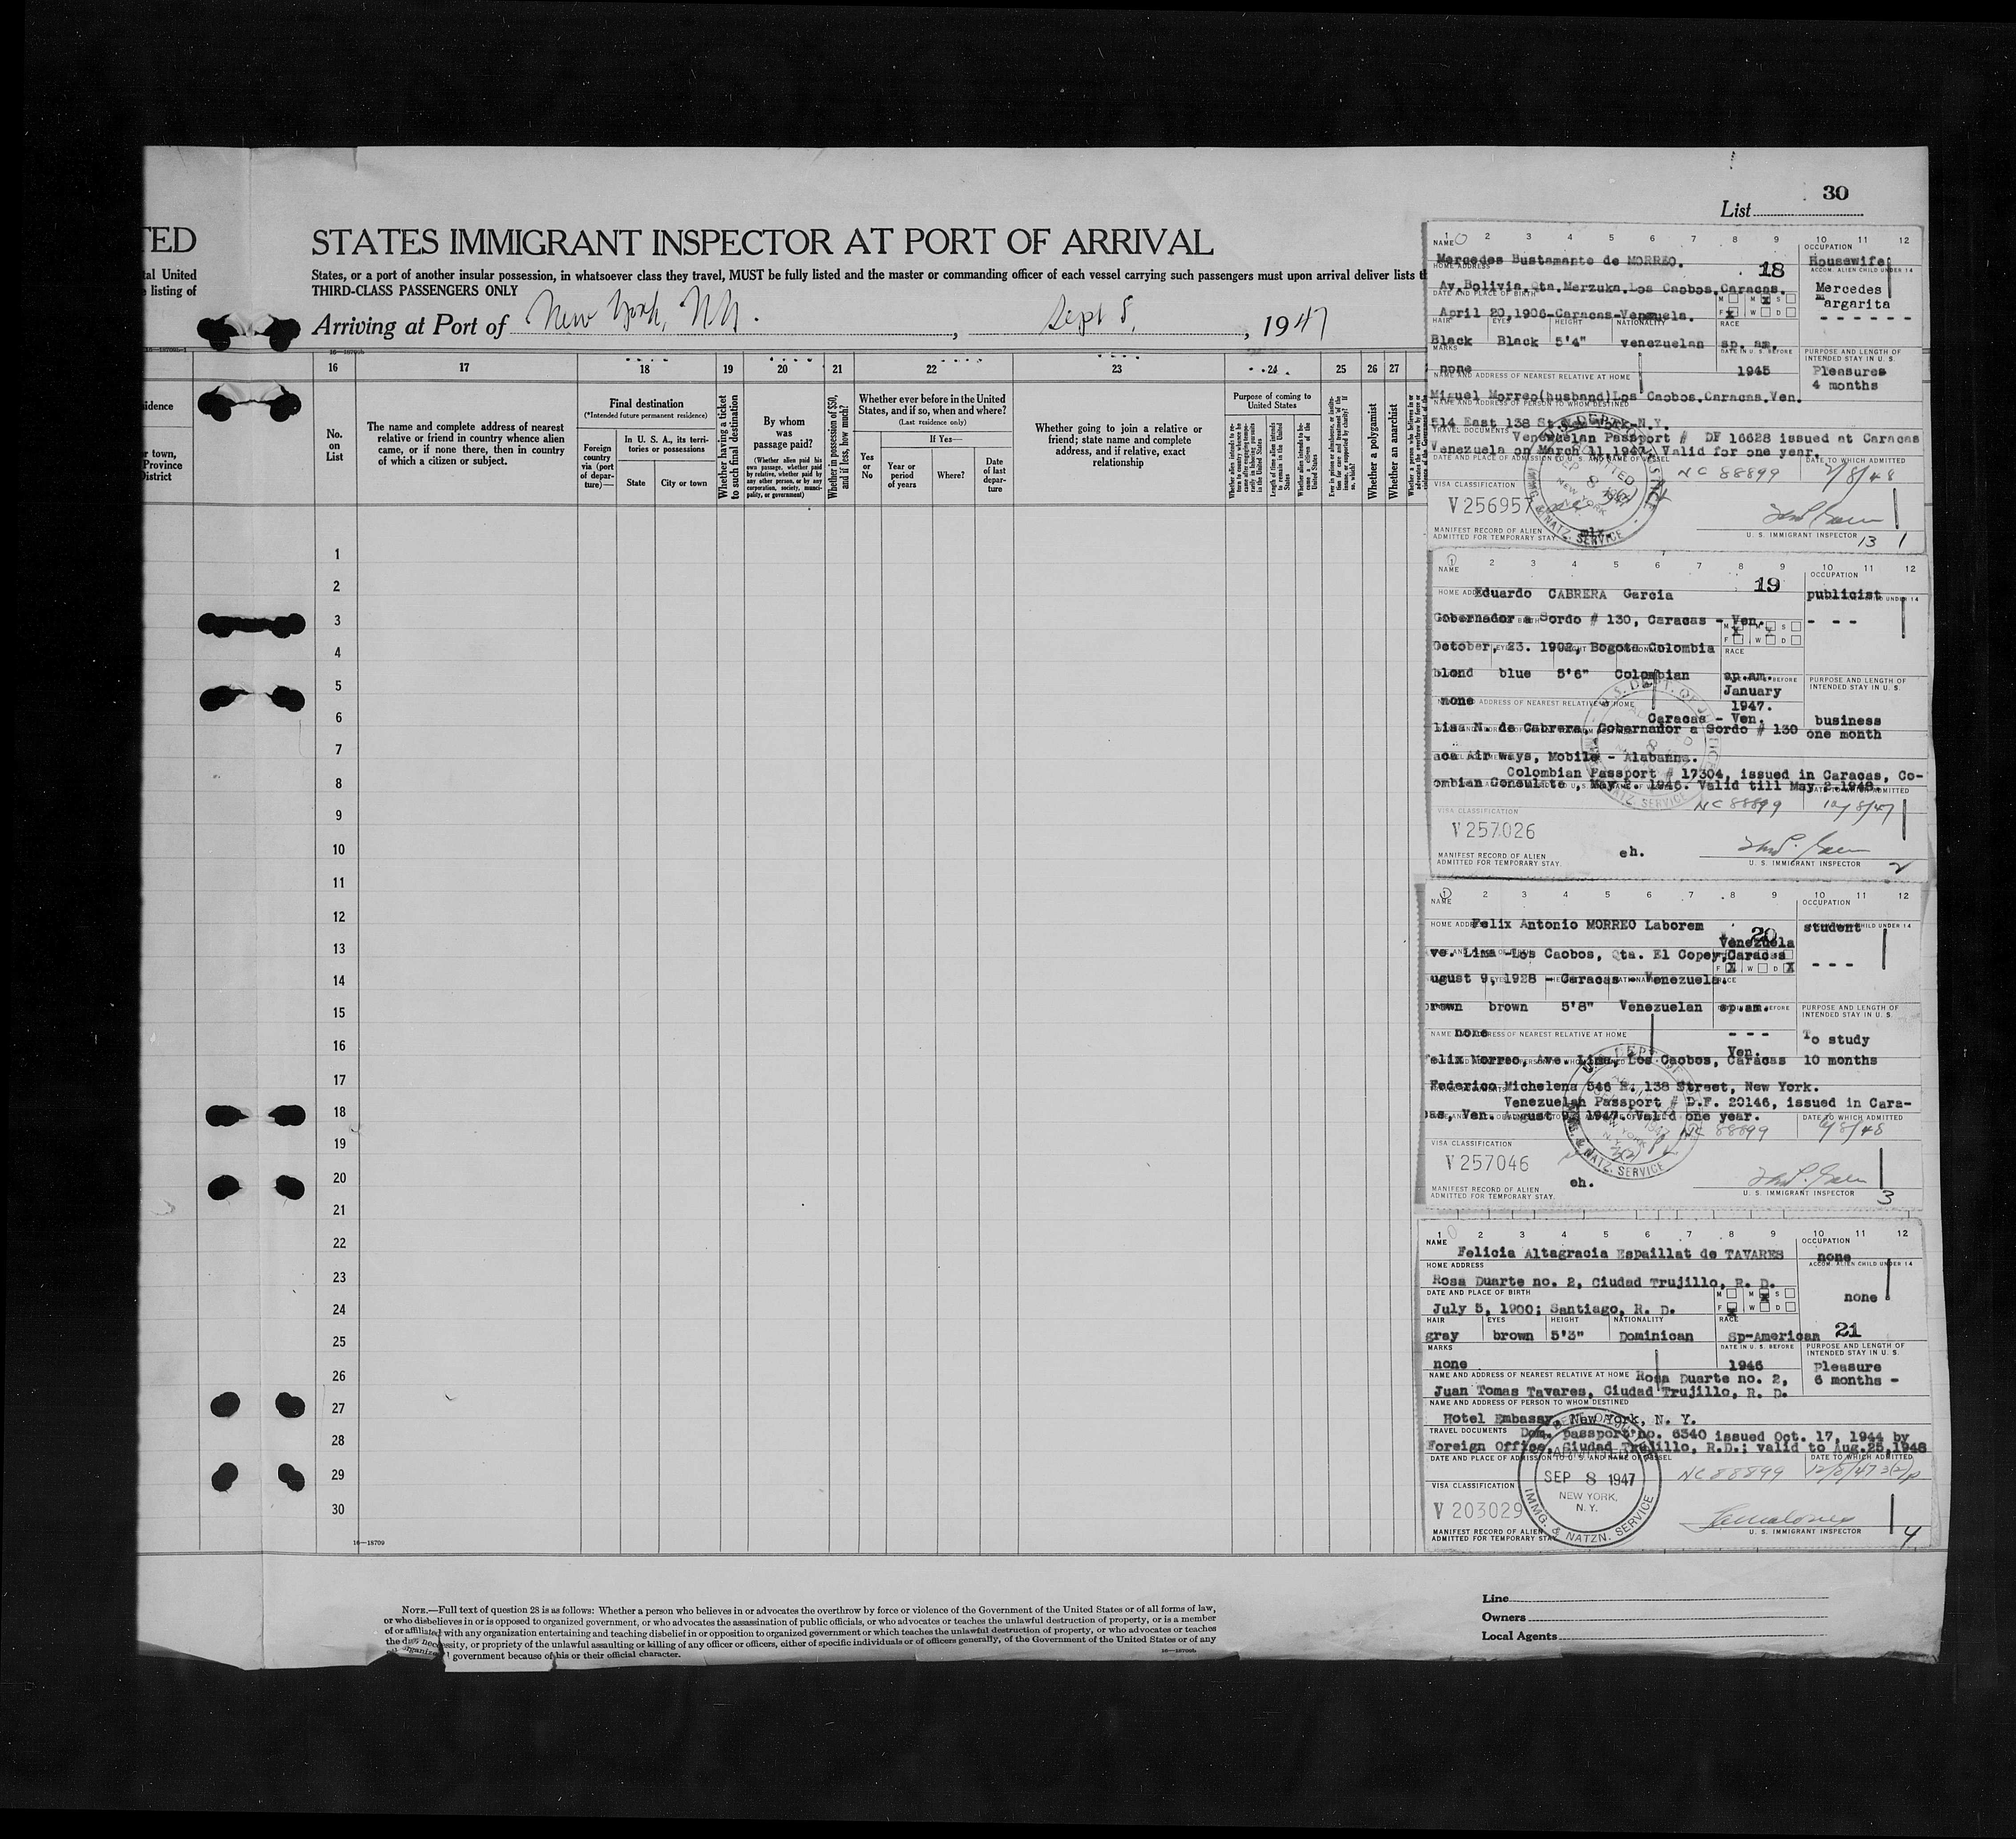 30
List
TED
STATES IMMIGRANT INSPECTOR AT PORT OF ARRIVAL
tal United
listing of
States, or a port of another insular possession, in whatsoever class they travel, MUST be fully listed and the master or commanding officer of each vessel carrying such passengers must upon arrival deliver lists
THIRD-CLASS PASSENGERS ONLY
Arriving at Port of New York, NY. , Sept 8, , 1947
16 17 18 19 20 21 22 23 24 25 26 27
idence
r town,
Province
District
No.
on
List
The name and complete address of nearest
relative or friend in country whence alien
came, or if none there, then in country
of which a citizen or subject.
Final destination
(*Intended future permanent residence)
Foreign
country
via (port
of depar-
ture)—
In U. S. A., its terri-
tories or possessions
State
City or town
Whether having a ticket
to such final destination
By whom
was
passage paid?
(Whether alien paid his
own passage, whether paid
by relative, whether paid by
any other person, or by any
corporation, society, munici-
pality, or government)
Whether in possession of $50,
and if less, how much?
Whether ever before in the United
States, and if so, when and where?
(Last residence only)
Yes
or
No
If Yes—
Year or
period
of years
Where?
Date
of last
depar-
ture
Whether going to join a relative or
friend; state name and complete
address, and if relative, exact
relationship
Purpose of coming to
United States
Length of time alien intends
to remain in the United
States
Whether a polygamist
Whether an anarchist
1
2
3
4
5
6
7
8
9
10
11
12
13
14
15
16
17
18
19
20
21
22
23
24
25
26
27
28
29
30
16—18709
1 2 3 4 5 6 7 8 9 10 11 12
NAME
OCCUPATION
Mercedes Bustamante de MORREO. 18 Housewife
HOME ADDRESS
ACCOM. ALIEN CHILD UNDER 14
Av.Bolivia.Qta.Merzuka.Los Caobos.Caracas. Mercedes
DATE AND PLACE OF BIRTH
margarita
April 20,1906-Caracas-Venezuela.
HAIR EYES HEIGHT NATIONALITY RACE
Black Black 5'4" venezuelan sp. am.
MARKS
DATE IN U. S. BEFORE
PURPOSE AND LENGTH OF
INTENDED STAY IN U. S.
none 1945 Pleasures
NAME AND ADDRESS OF NEAREST RELATIVE AT HOME
4 months
Miguel Morreo(husband)Los Caobos.Caracas.Ven.
NAME AND ADDRESS OF PERSON TO WHOM DESTINED
514 East 138 St.New York-N.Y.
TRAVEL DOCUMENTS
Venezuelan Passport # DF 16628 issued at Caracas
Venezuela on March 11,1947. Valid for one year.
DATE TO WHICH ADMITTED
NC 88899 2/8/48
VISA CLASSIFICATION
V 256957
MANIFEST RECORD OF ALIEN
ADMITTED FOR TEMPORARY STAY.
mlx.
U. S. IMMIGRANT INSPECTOR
13 1
1 2 3 4 5 6 7 8 9 10 11 12
NAME
OCCUPATION
19
Eduardo CABRERA Garcia publicist
Gobernador a Sordo # 130, Caracas - Ven. - - -
October, 23. 1902, Bogota Colombia
RACE
blond blue 5'6" Colombian sp.am.
PURPOSE AND LENGTH OF
INTENDED STAY IN U. S.
January
none 1947.
Caracas - Ven. business
lisa N. de Cabrera, Gobernador a Sordo # 130 one month
aca Air ways, Mobile - Alabanna.
Colombian Passport # 17304, issued in Caracas, Co-
ombian Consulate, May 2. 1946. Valid till May 2.1948.
NC 88899 10/8/47
VISA CLASSIFICATION
V 257026
MANIFEST RECORD OF ALIEN
ADMITTED FOR TEMPORARY STAY.
eh.
U. S. IMMIGRANT INSPECTOR
2
1 2 3 4 5 6 7 8 9 10 11 12
NAME
OCCUPATION
Felix Antonio MORREO Laborem 20 student
Venezuela
ve. Lima -Los Caobos, Qta. El Copey,Caracas - - -
ugust 9, 1928 - Caracas - Venezuela.
rown brown 5'8" Venezuelan sp.am.
PURPOSE AND LENGTH OF
INTENDED STAY IN U. S.
none - - - To study
Ven.
elix Morreo, Ave. Lima, Los Caobos, Caracas 10 months
Federico Michelena 546 E. 138 Street, New York.
Venezuelan Passport # D.F. 20146, issued in Cara-
as, Ven. August 9, 1947. Valid one year.
DATE TO WHICH ADMITTED
NC 88899 6/8/48
VISA CLASSIFICATION
V 257046
MANIFEST RECORD OF ALIEN
ADMITTED FOR TEMPORARY STAY.
eh.
U. S. IMMIGRANT INSPECTOR
3
1 2 3 4 5 6 7 8 9 10 11 12
NAME
OCCUPATION
Felicia Altagracia Espaillat de TAVARES none
HOME ADDRESS
ACCOM. ALIEN CHILD UNDER 14
Rosa Duarte no. 2, Ciudad Trujillo, R. D.
DATE AND PLACE OF BIRTH
none
July 5, 1900; Santiago, R. D.
HAIR EYES HEIGHT NATIONALITY RACE
gray brown 5'3" Dominican Sp-American 21
MARKS
DATE IN U. S. BEFORE
PURPOSE AND LENGTH OF
INTENDED STAY IN U. S.
none 1946 Pleasure
NAME AND ADDRESS OF NEAREST RELATIVE AT HOME Rosa Duarte no. 2, 6 months -
Juan Tomas Tavares, Ciudad Trujillo, R. D.
NAME AND ADDRESS OF PERSON TO WHOM DESTINED
Hotel Embassy, New York, N. Y.
TRAVEL DOCUMENTS Dom. passport no. 6340 issued Oct. 17, 1944 by
Foreign Office, Ciudad Trujillo, R.D.; valid to Aug.25,1948
DATE AND PLACE OF ADMISSION TO U. S. AND NAME OF VESSEL
DATE TO WHICH ADMITTED
ADMITTED
SEP 8 1947
NEW YORK,
N. Y.
IMMG. & NATZN. SERVICE
NC 88899 12/8/47
VISA CLASSIFICATION
V 203029
MANIFEST RECORD OF ALIEN
ADMITTED FOR TEMPORARY STAY
U. S. IMMIGRANT INSPECTOR
4
NOTE.—Full text of question 28 is as follows: Whether a person who believes in or advocates the overthrow by force or violence of the Government of the United States or of all forms of law,
or who disbelieves in or is opposed to organized government, or who advocates the assassination of public officials, or who advocates or teaches the unlawful destruction of property, or is a member
of or affiliated with any organization entertaining and teaching disbelief in or opposition to organized government or which teaches the unlawful destruction of property, or who advocates or teaches
the duty, necessity, or propriety of the unlawful assaulting or killing of any officer or officers, either of specific individuals or of officers generally, of the Government of the United States or of any
organized government because of his or their official character.
Line
Owners
Local Agents